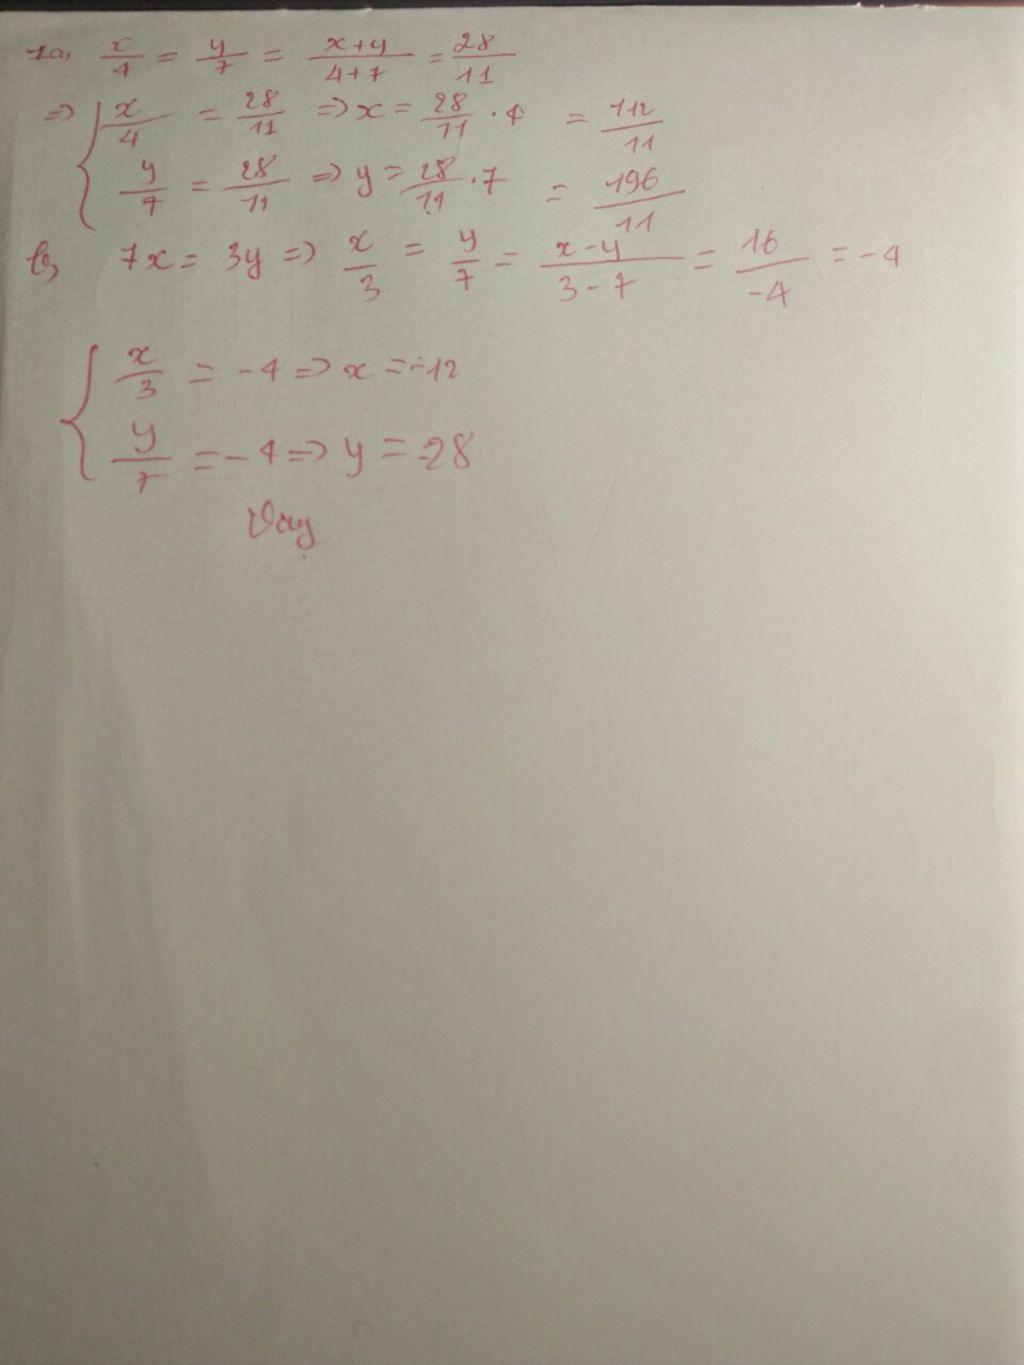 1a, x/4 = y/7 = (x+y)/(4+7) = 28/11
=> { x/4 = 28/11 => x = 28/11 . 4 = 112/11
y/7 = 28/11 => y = 28/11 . 7 = 196/11
b, 7x = 3y => x/3 = y/7 = (x-y)/(3-7) = 16/-4 = -4
{ x/3 = -4 => x = -12
y/7 = -4 => y = -28
Vậy